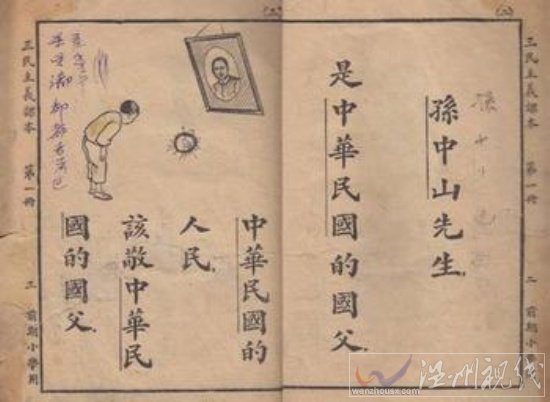 (二)
三民主義課本 第一冊 二 前期小學用
孫中山先生，
是中華民國的國父。
(三)
中華民國的
人民，
該敬中華民
國的國父。
三民主義課本 第一冊 二 前期小學用
温州视线
www.wenzhousx.com